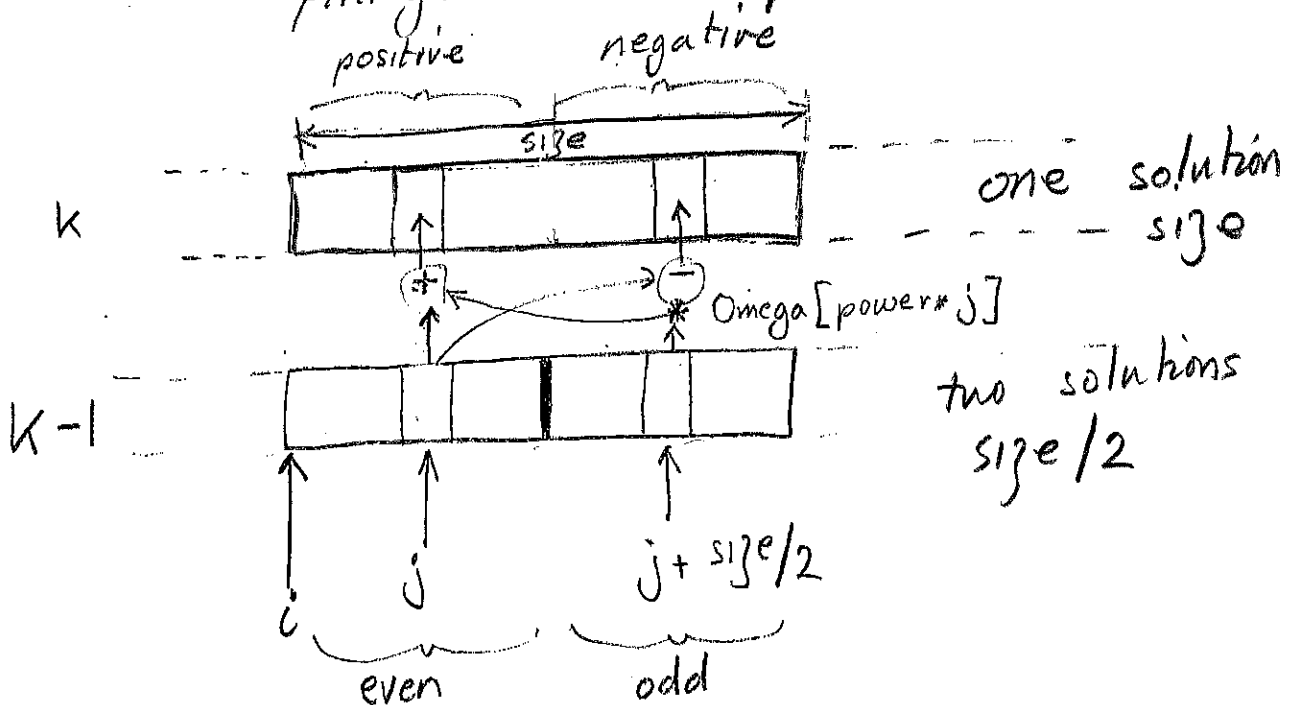 positive negative
size
k one solution
size
+ -
* Omega[power* j]
K-1 two solutions
size/2
i j j + size/2
even odd